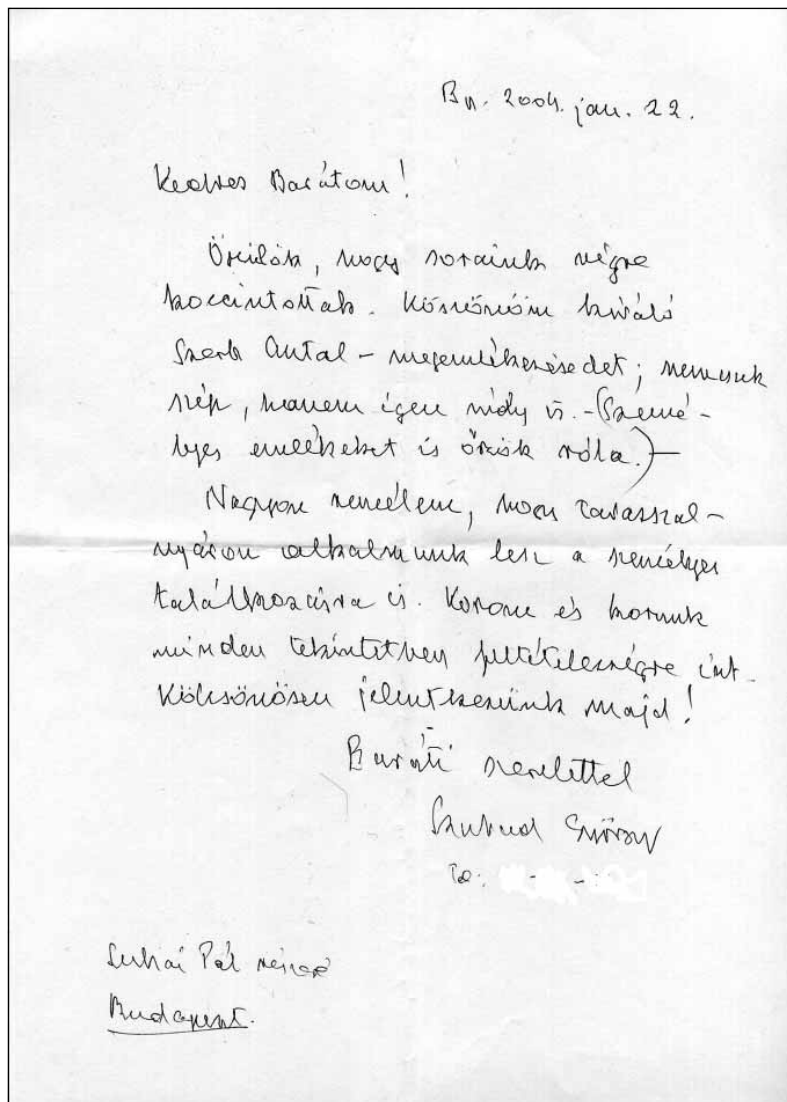 Bp. 2004. jan. 22.
Kedves Barátom!
Örülök, hogy soraink végre
koccintottak. Köszönöm kiváló
Szerb Antal – megemlékezésedet; nemcsak
szép, hanem igen mély is. – (Szemé-
lyes emlékeket is őrzök róla.) –
Nagyon remélem, hogy tavasszal –
nyáron alkalmunk lesz a személyes
találkozásra is. Korom és korunk
minden tekintetben feltételességre int.
Kölcsönösen jelentkezünk majd!
Baráti szeretettel
György
Tel:
Suhai Pál részére
Budapest.